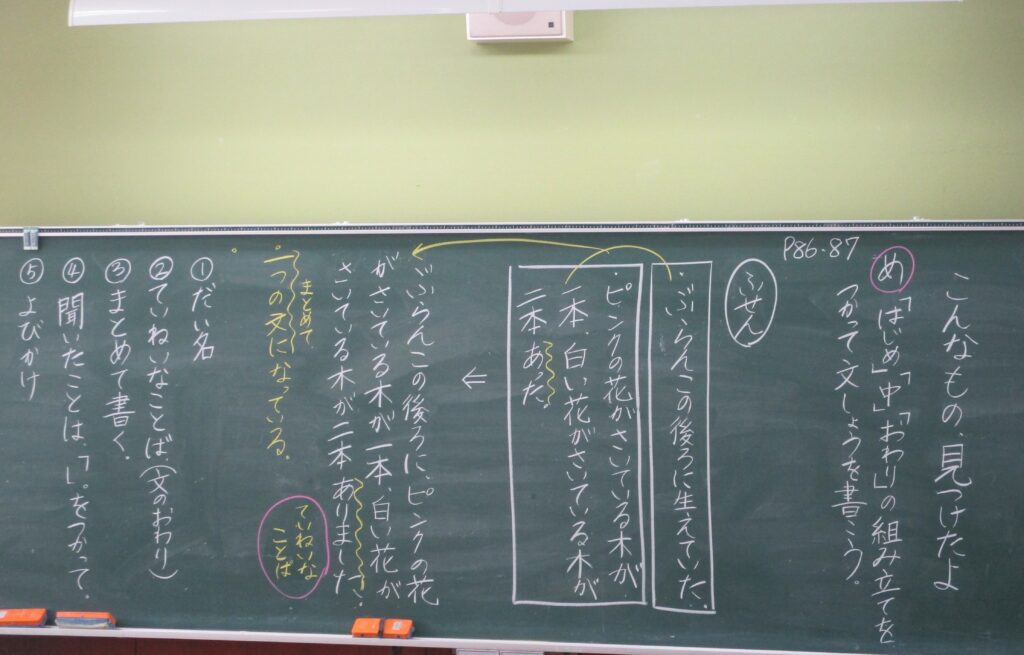 こんなもの、見つけたよ
P86.87
め 「はじめ」「中」「おわり」の組み立てを
つかって文しょうを書こう。
ふせん
・ぶらんこの後ろに生えていた。
・ピンクの花がさいている木が
一本、白い花がさいている木が
二本あった。
⇐
ぶらんこの後ろに、ピンクの花
がさいている木が一本、白い花が
さいている木が二本ありました。
ていねいな
ことば
まとめて
一つの文になっている。
①だい名
②ていねいなことば(文のおわり)
③まとめて書く。
④聞いたことは、「」。をつかって。
⑤よびかけ